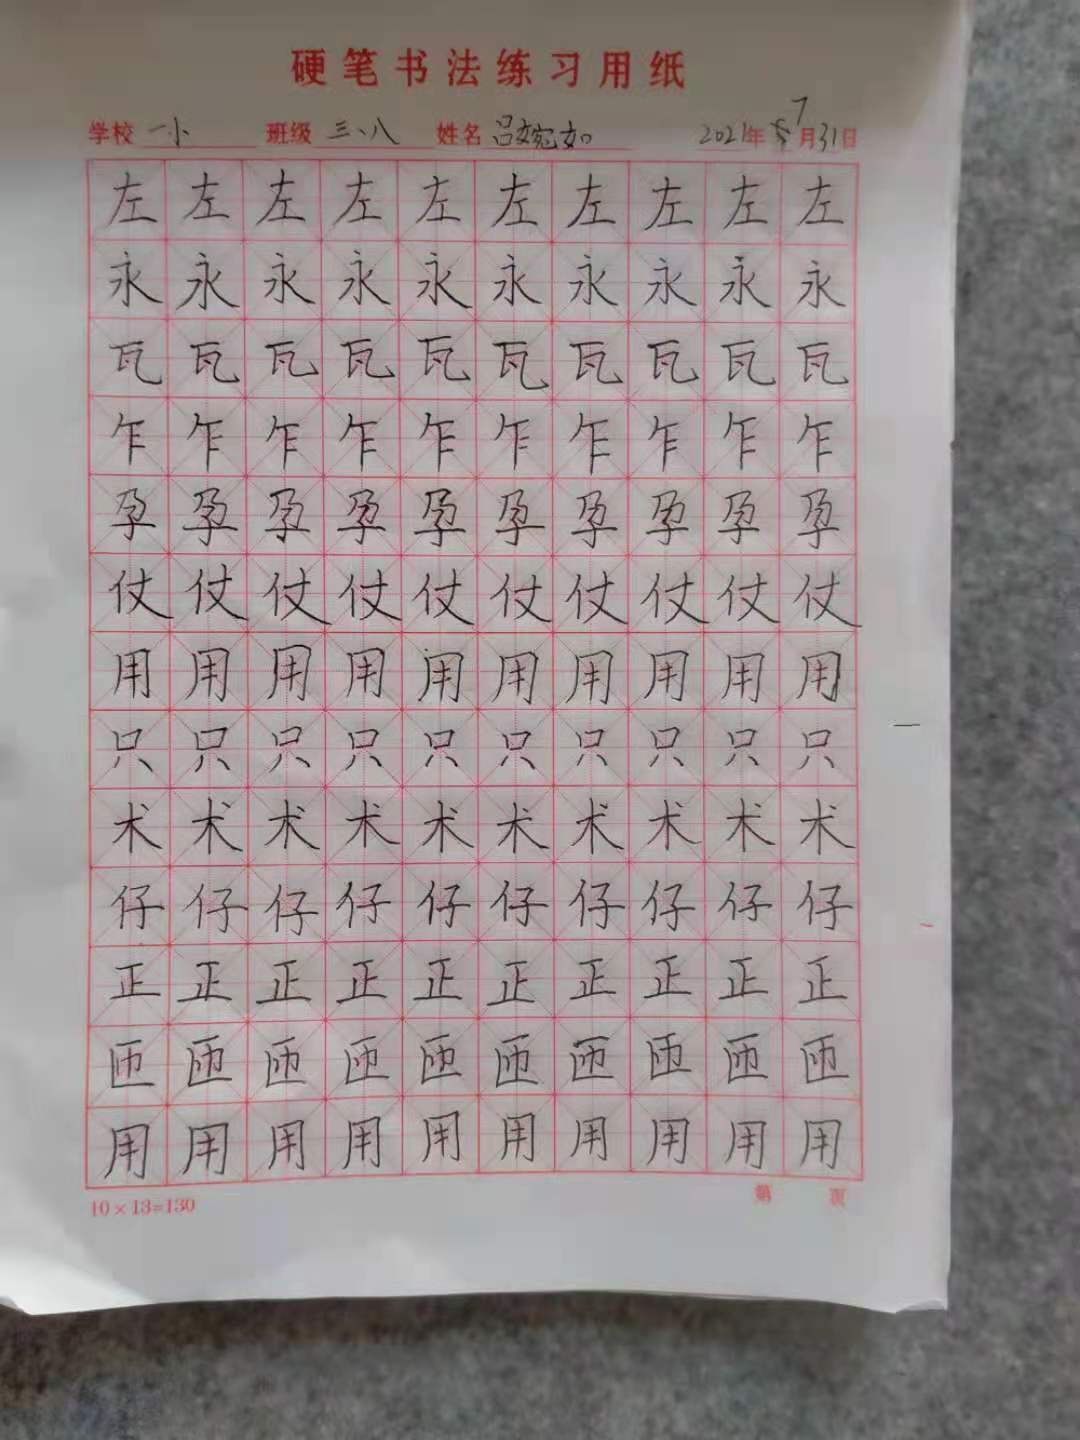 硬笔书法练习用纸
学校 一小 班级 三、八 姓名 吕婉如 2021年7月31日
左左左左左左左左左左
永永永永永永永永永永
瓦瓦瓦瓦瓦瓦瓦瓦瓦瓦
乍乍乍乍乍乍乍乍乍乍
孕孕孕孕孕孕孕孕孕孕
仗仗仗仗仗仗仗仗仗仗
用用用用用用用用用用
只只只只只只只只只只
术术术术术术术术术术
仔仔仔仔仔仔仔仔仔仔
正正正正正正正正正正
匝匝匝匝匝匝匝匝匝匝
用用用用用用用用用用
10×13=130 第 页